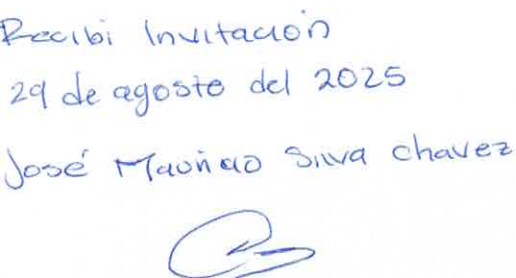 Recibi Invitación
29 de agosto del 2025
José Mauricio Silva chavez